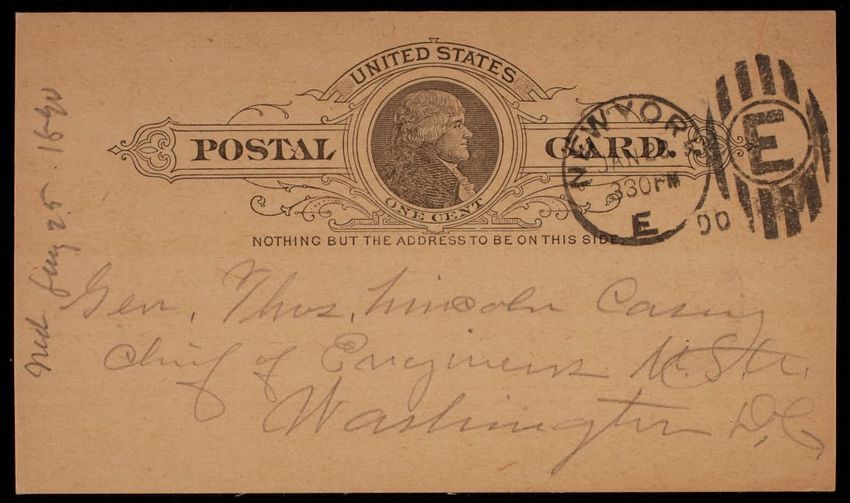 UNITED STATES
POSTAL CARD.
ONE CENT
NOTHING BUT THE ADDRESS TO BE ON THIS SIDE.
NEW YORK
JAN
330PM
E
DO
E
Gen. Thos. Lincoln Casey
Chief of Engineers U.S.A.
Washington D.C.
25. 1890